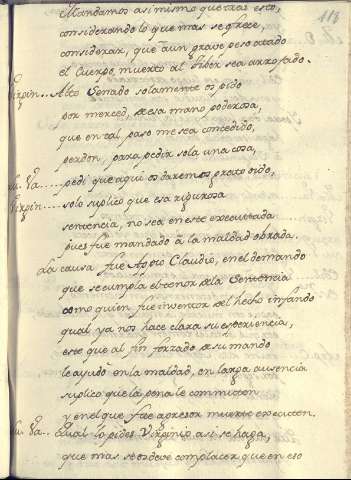 118
Mandamos asi mismo que tras esto,
considerando lo que mas se ofrece,
considerar, que à un grave peso atado
el Cuerpo muerto al tiber sea arrojado.
Virgin... Alto Senado solamente os pido
por merced, de esa mano poderosa,
que en tal paso me sea concedido,
perdon, para pedir sola una cosa,
pedi que aqui os daremos grato oido,
Virgin.... solo suplico que esa rigurosa
sentencia, no sea en este executada
pues fue mandado à la maldad obrada.
La causa fue Appio Claudio, en el demando
que se cumpla el tenor de la Sentencia
como quien fue inventor del hecho infando
qual ya nos hace clara su esperiencia,
este que al fin forzado de su mando
le ayudó en la maldad, en larga ausencia
suplico que la pena le commuten
y en el que fue agresor muerte executen.
Qual lo pides Virginio asi se haga,
que mas se os debe complacer que en eso